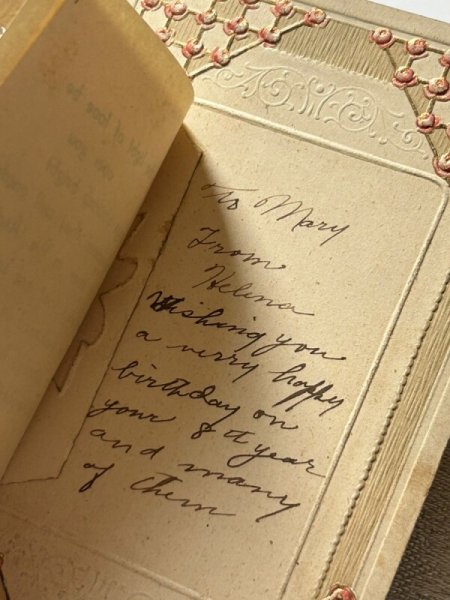 To Mary
From
Helena
Wishing you
a verry happy
birthday on
your 8 th year
and many
of them